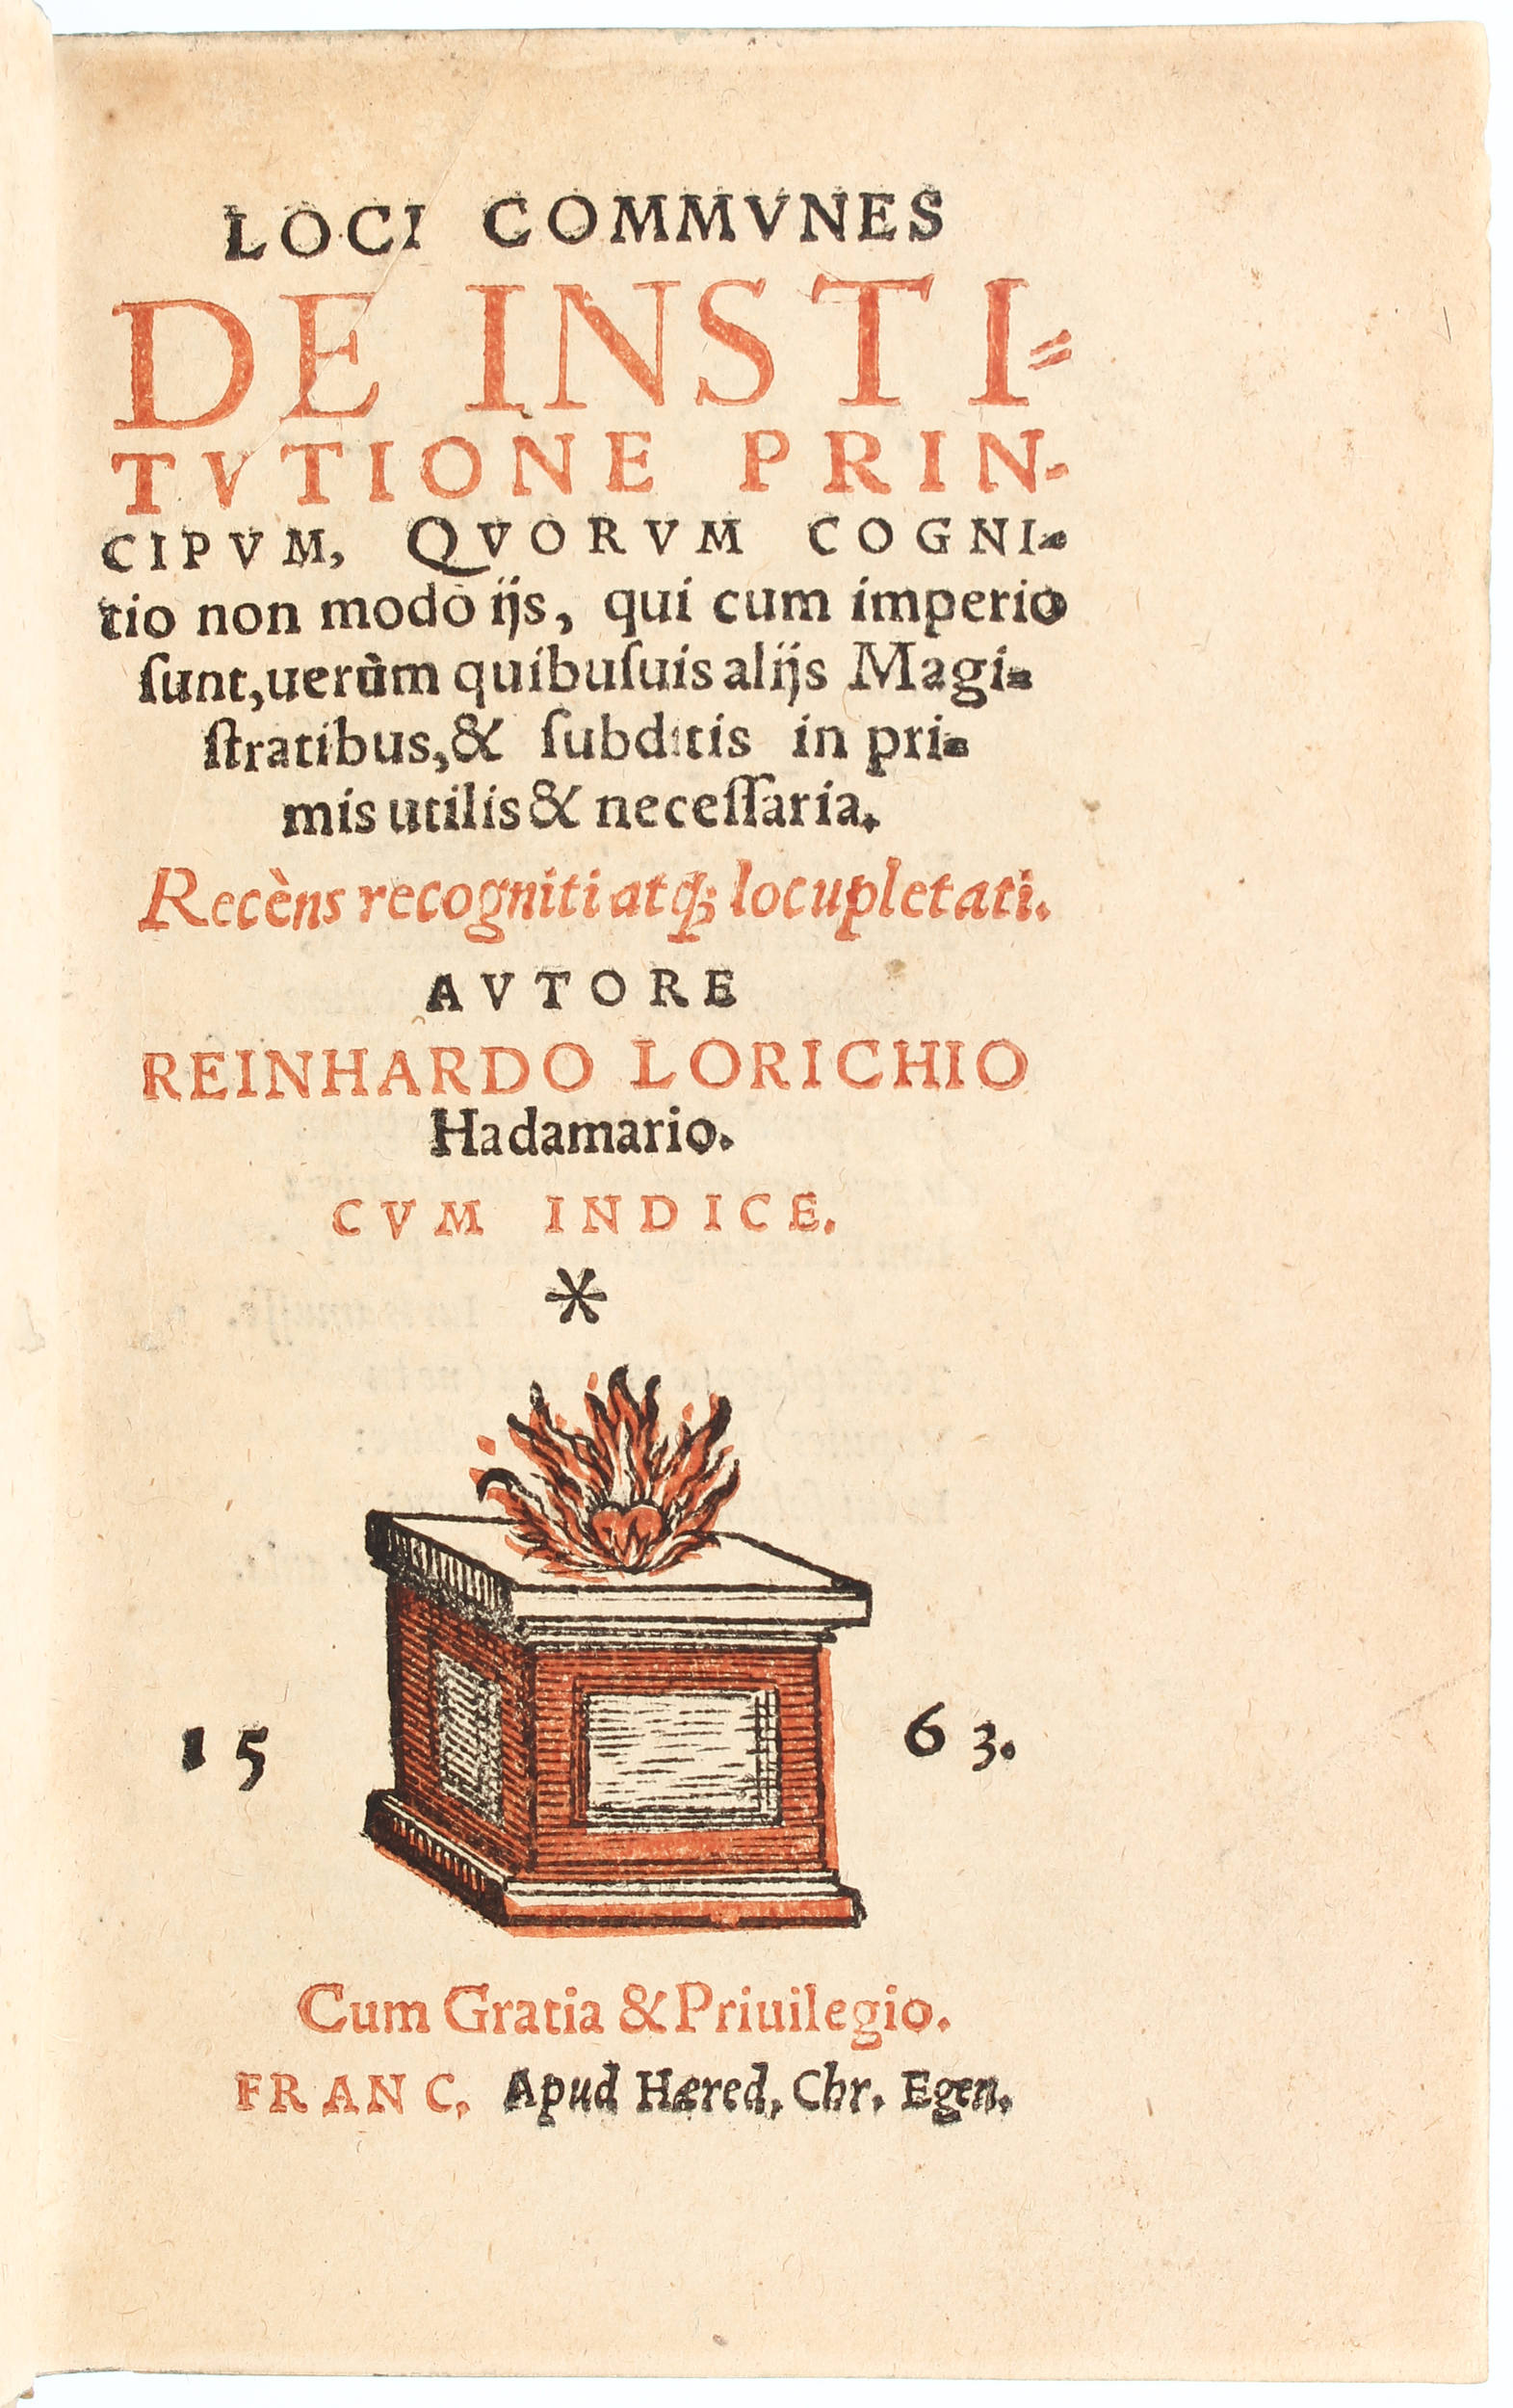 LOCI COMMVNES
DE INSTI=
TVTIONE PRIN-
CIPVM, QVORVM COGNI-
tio non modò ijs, qui cum imperio
ſunt, uerùm quibuſuis alijs Magi-
ſtratibus, & ſubditis in pri-
mis utilis & neceſſaria.
Recèns recogniti atq; locupletati.
AVTORE
REINHARDO LORICHIO
Hadamario.
CVM INDICE.
*
15 63.
Cum Gratia & Priuilegio.
FRANC. Apud Hæred. Chr. Egen.